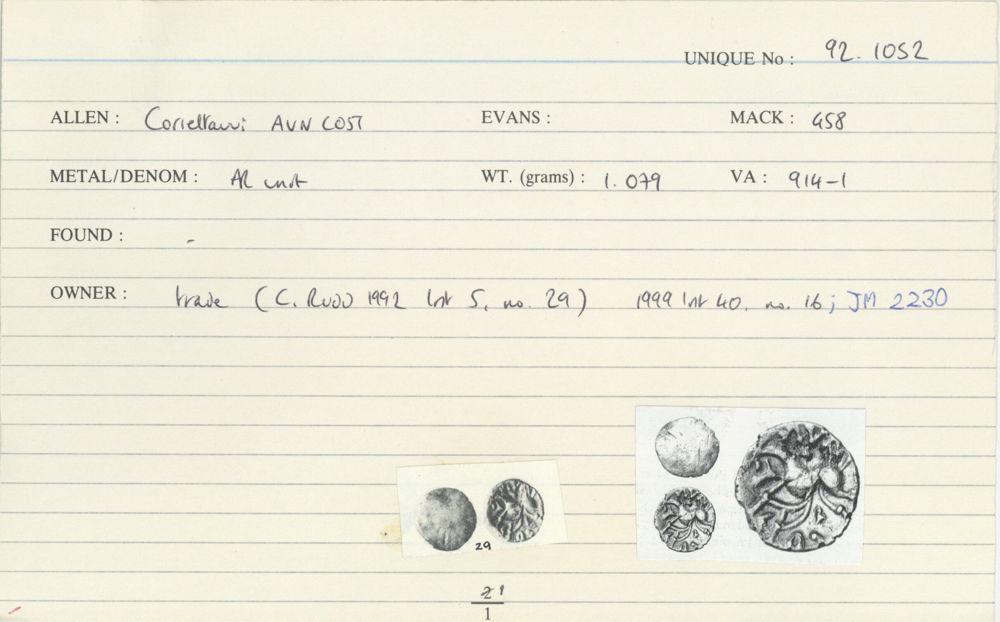 UNIQUE No : 92. 1052
ALLEN : Corieltauvi AVN COST EVANS : MACK : 458
METAL/DENOM : AR unit WT. (grams) : 1.079 VA : 914-1
FOUND : -
OWNER : trade (C. RUDD 1992 list 5, no. 29) 1999 list 40, no. 16; JM 2230
29
21
1